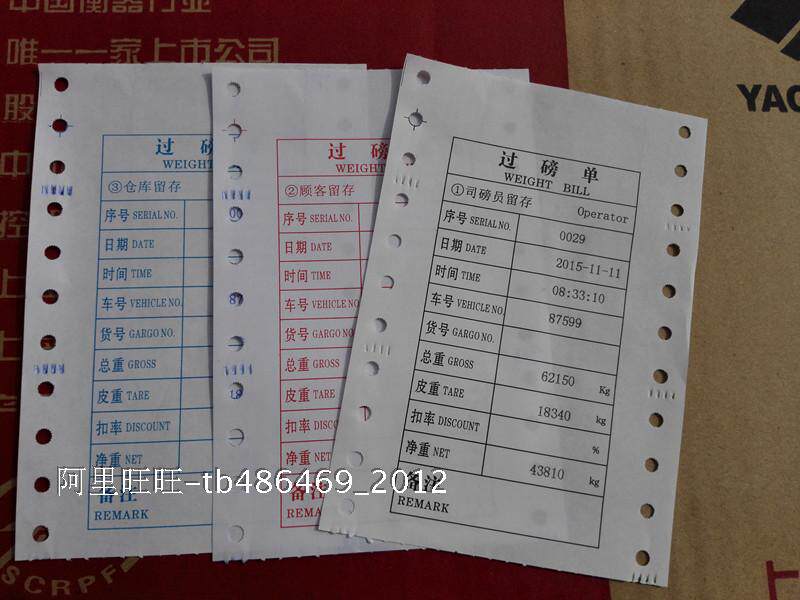 中国衡器行业
唯一一家上市公司
股
中
控
上
YAO
上
SCRPF
过 磅
WEIGHT
③仓库留存
序号 SERIAL NO.
日期 DATE
时间 TIME
车号 VEHICLE NO.
货号 GARGO NO.
总重 GROSS
皮重 TARE
扣率 DISCOUNT
净重 NET
备注
REMARK
过 磅
WEIGHT
②顾客留存
序号 SERIAL NO.
日期 DATE
时间 TIME
车号 VEHICLE NO.
货号 GARGO NO.
总重 GROSS
皮重 TARE
扣率 DISCOUNT
净重 NET
备注
REMARK
过 磅 单
WEIGHT BILL
①司磅员留存 Operator
序号 SERIAL NO. 0029
日期 DATE 2015-11-11
时间 TIME 08:33:10
车号 VEHICLE NO. 87599
货号 GARGO NO.
总重 GROSS 62150 Kg
皮重 TARE 18340 kg
扣率 DISCOUNT %
净重 NET 43810 kg
备注
REMARK
阿里旺旺-tb486469_2012